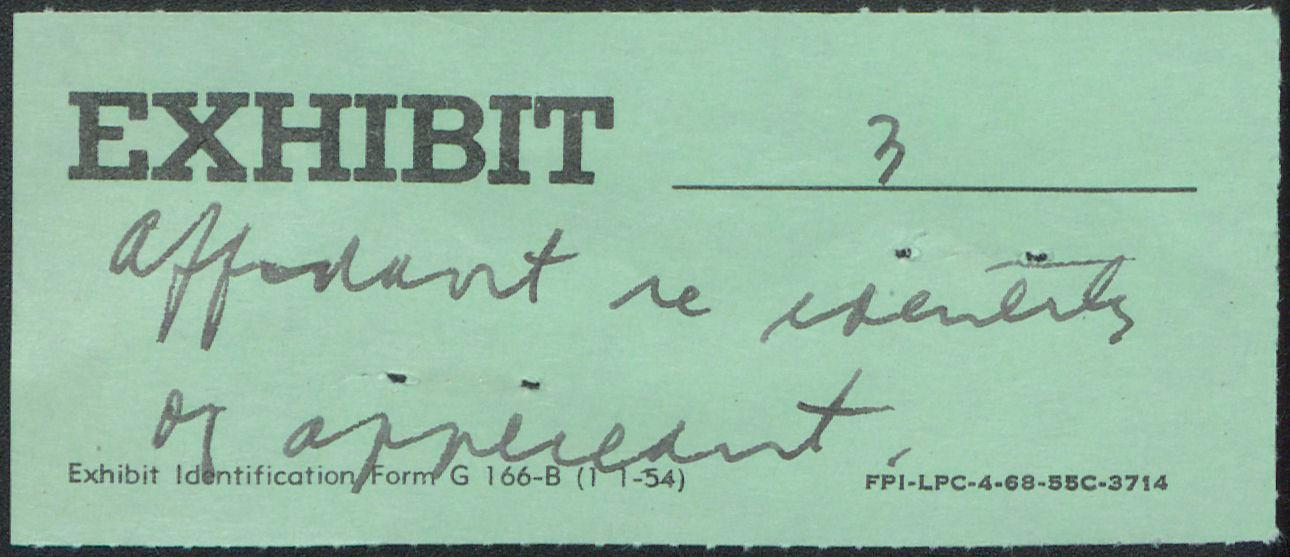 EXHIBIT 3
Affidavit re identity
of applicant.
Exhibit Identification Form G 166-B (1 1-54)
FPI-LPC-4-68-55C-3714